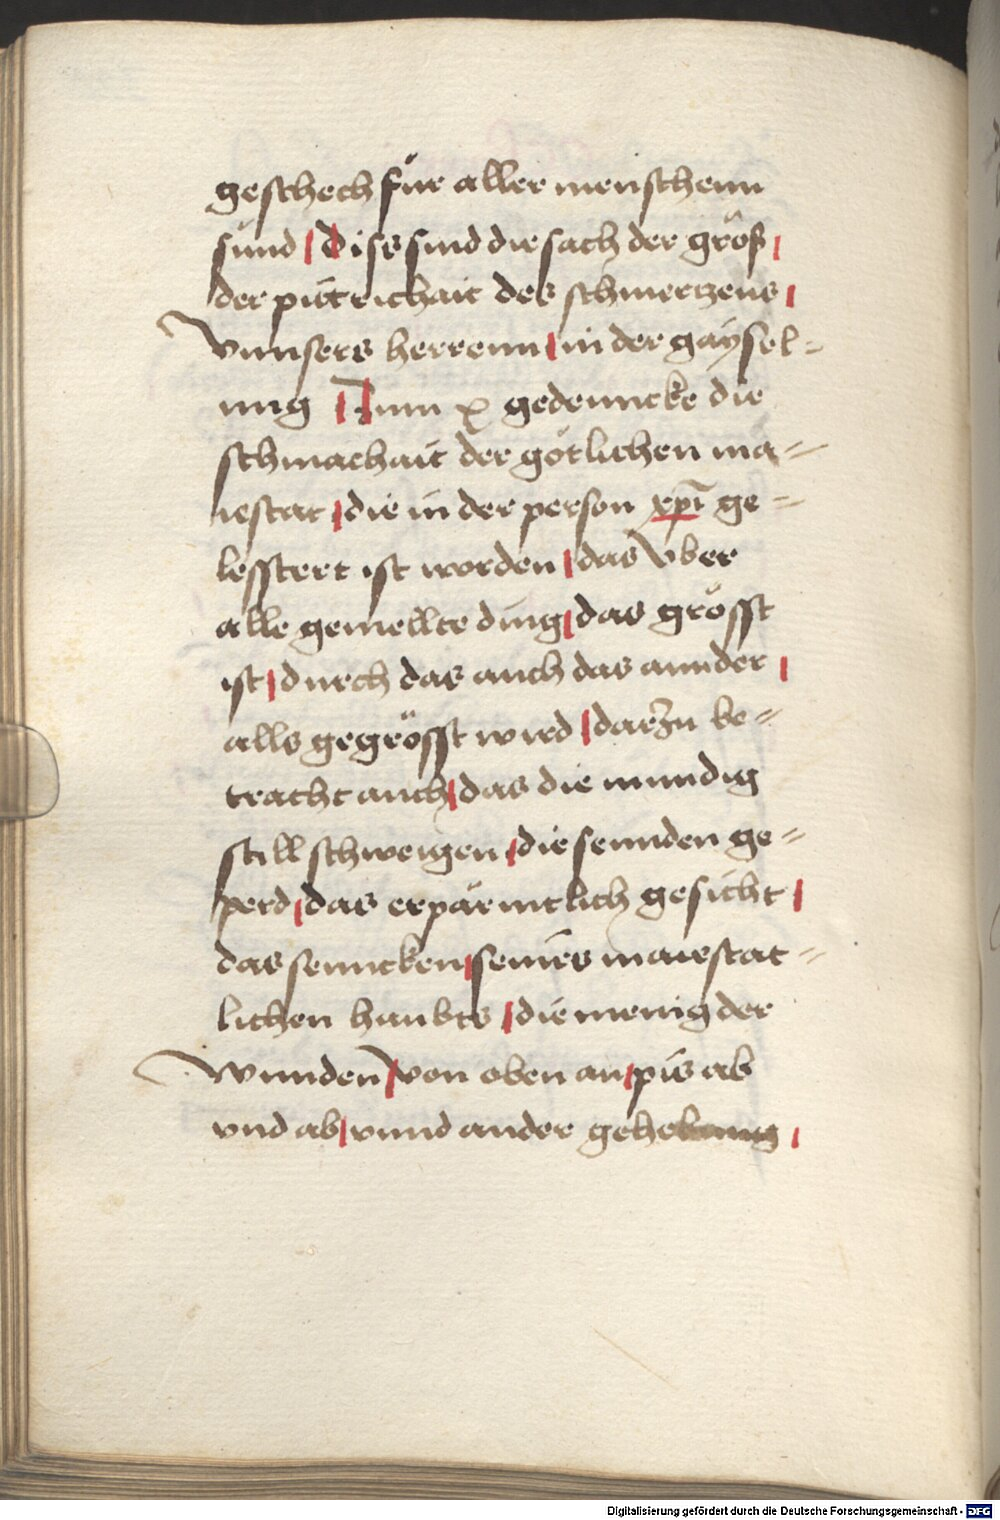 geschech für aller menschenn
sünd | Diss sind die sach der größ |
der pittrichait des schmertzens |
vnnsers herrenn | in der gaysel-
ung | Zum x gedenncke die
schmachait der götlichen ma-
iestat | die in der person xpi ge-
lesstert ist worden | das vber
alle gemellte ding | das grösst
ist | durch das auch das annder |
alls gegrösst wird | darzu be-
tracht auch | das die mundig
still schweigen | die sennden ge-
perd | das erpärmtlich gesicht |
das senncken | seines maiestat-
lichen haubts | die menig der
wunden | von oben an | pis ab
vnd ab | vnnd ander gehebung |
Digitalisierung gefördert durch die Deutsche Forschungsgemeinschaft - DFG